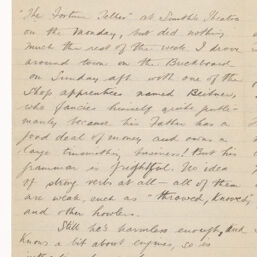 "The Fortune Teller" at Smith's Theatre
on the Monday, but did nothing
much the rest of the week. I drove
around town on the Buckboard
on Sunday aft. with one of the
shop apprentices named
who fancies himself quite gentle-
manly because his Father has a
good deal of money and owns a
large tinsmithing business! But his
grammar is frightful. No idea
of strong verbs at all - all of them
are weak, such as "throwed, knowed",
and other howlers.
Still he's harmless enough, and
knows a bit about engines, so is